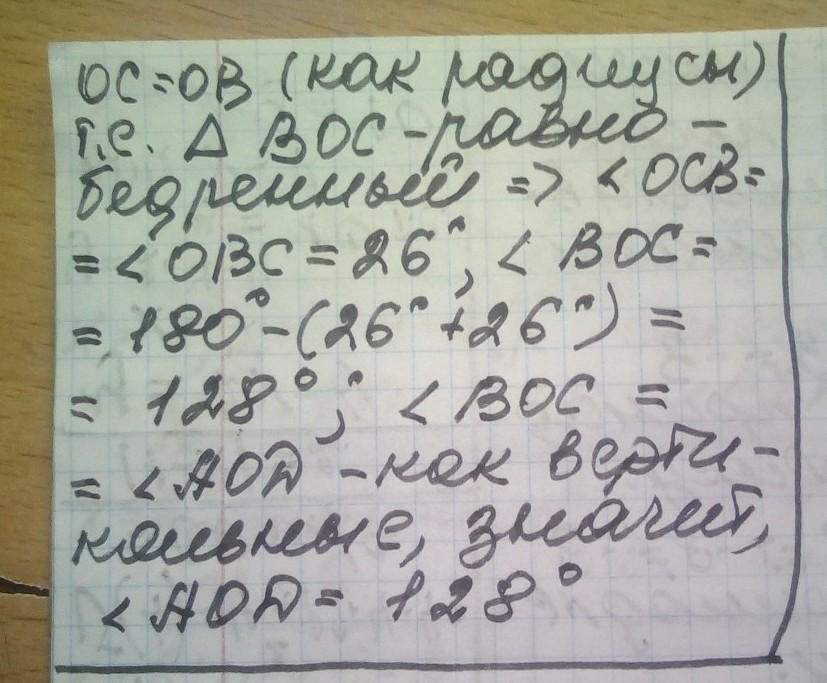 OC=OB (как радиусы)
т.е. Δ BOC -равно-
бедренный => <OCB=
=<OBC=26°, <BOC=
=180°-(26°+26°)=
= 128°; <BOC =
= <AOD -как верти-
кальные, значит,
<AOD= 128°